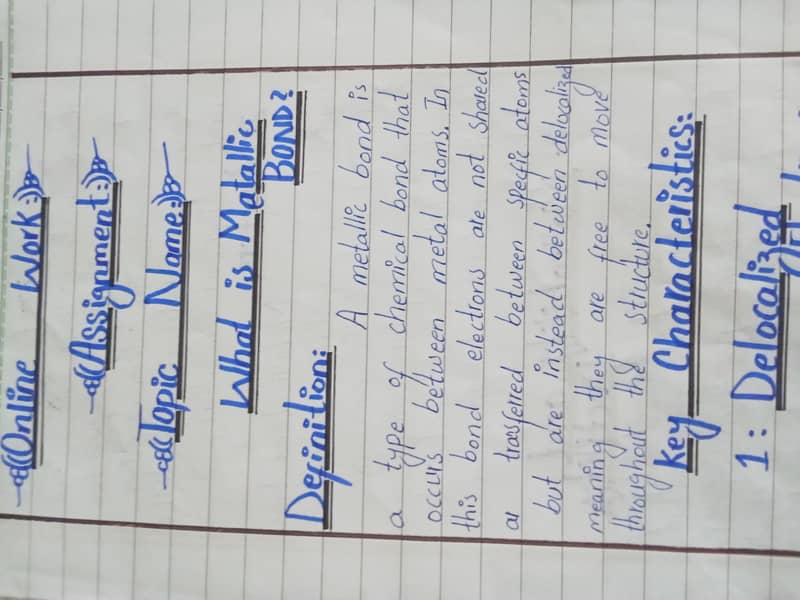 Online Work:
Assignment:
Topic Name:
What is Metallic
BOND?
Definition:
A metallic bond is
a type of chemical bond that
occurs between metal atoms. In
this bond elections are not shared
or trasferred between specific atoms
but are instead between delocalized
meaning they are free to move
throughout the structure.
Key Characteristics:
1: Delocalized